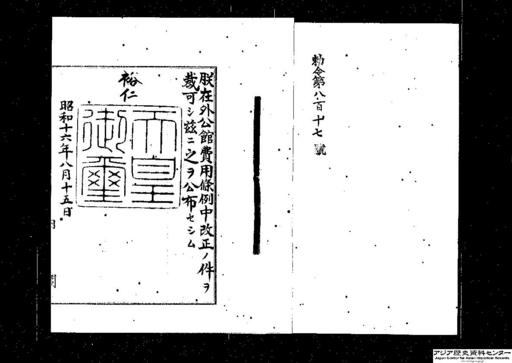 勅令第八百十七號
朕在外公館費用條例中改正ノ件ヲ
裁可シ茲ニ之ヲ公布セシム
裕仁
天皇
御璽
昭和十六年八月十五日
アジア歴史資料センター
Japan Center for Asian Historical Records